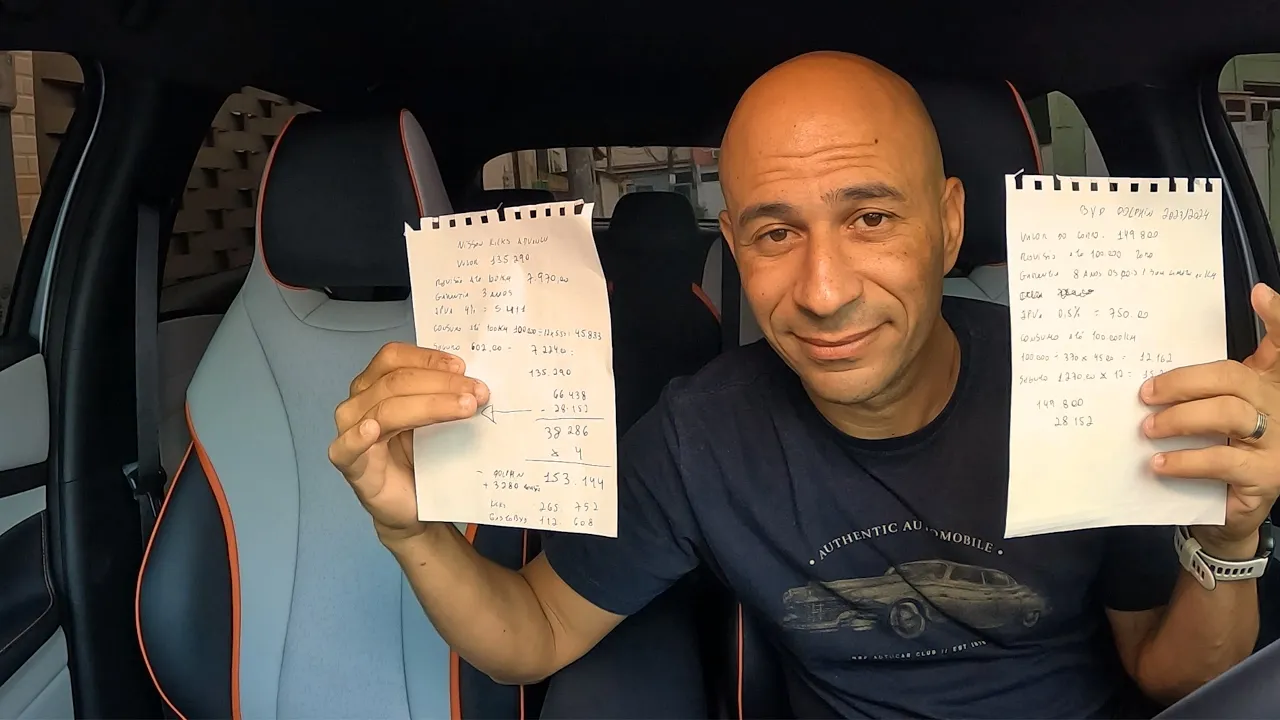 NISSAN KICKS ADVANCE
VALOR 135.290
REVISÃO ATE 60MKM 7.970,00
GARANTIA 3 ANOS
IPVA 4% = 5.411
CONSUMO ATÉ 100KM 100.000
45.833
SEGURO 602,00 - 7.224,00
135.290
66 438
- 28.152
38 286
x 4
153.144
- DOLPHIN
+ 3280
KICKS 265. 752
112. 608
BYD DOLPHIN 2023/2024
VALOR DO CARRO. 149 800
REVISÃO ATÉ 100.000
GARANTIA 8 ANOS
IPVA 0,5% = 750.00
CONSUMO ATÉ 100.000KM
100.000 ÷ 370 x 45,00 = 12.162
SEGURO 1270,00 x 12 =
149 800
28 152
• AUTHENTIC AUTOMOBILE •
AUTOCAR CLUB // EST